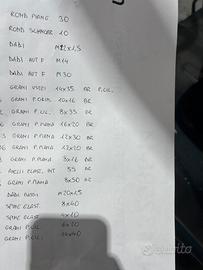 ROND PIANE 30
ROND SCHNORR 10
DADI M12x1,5
DADI AUT F M14
DADI AUT F M30
GRANI VSSEI 14x35 BR P.CIL.
GRANI P.CON. 10x16 BR
GRANI P.CIL. 8x35 BR
GRANI P.PIANA 16x20 BR
GRANI P.PIANA 12x30 BR
GRANI P.PIANA 12x20 BR
GRANI P.PIANA 8x16 BR
ANELLI ELAST. INT 55 BR
GRANI P.PIANA 8x50
DADI BASSI M20x1,5
SPINE ELAST. 8x40
SPINE ELAST. 4x10
GRANI P.CIL. 6x20
GRANI P.CIL. 16x40
subito